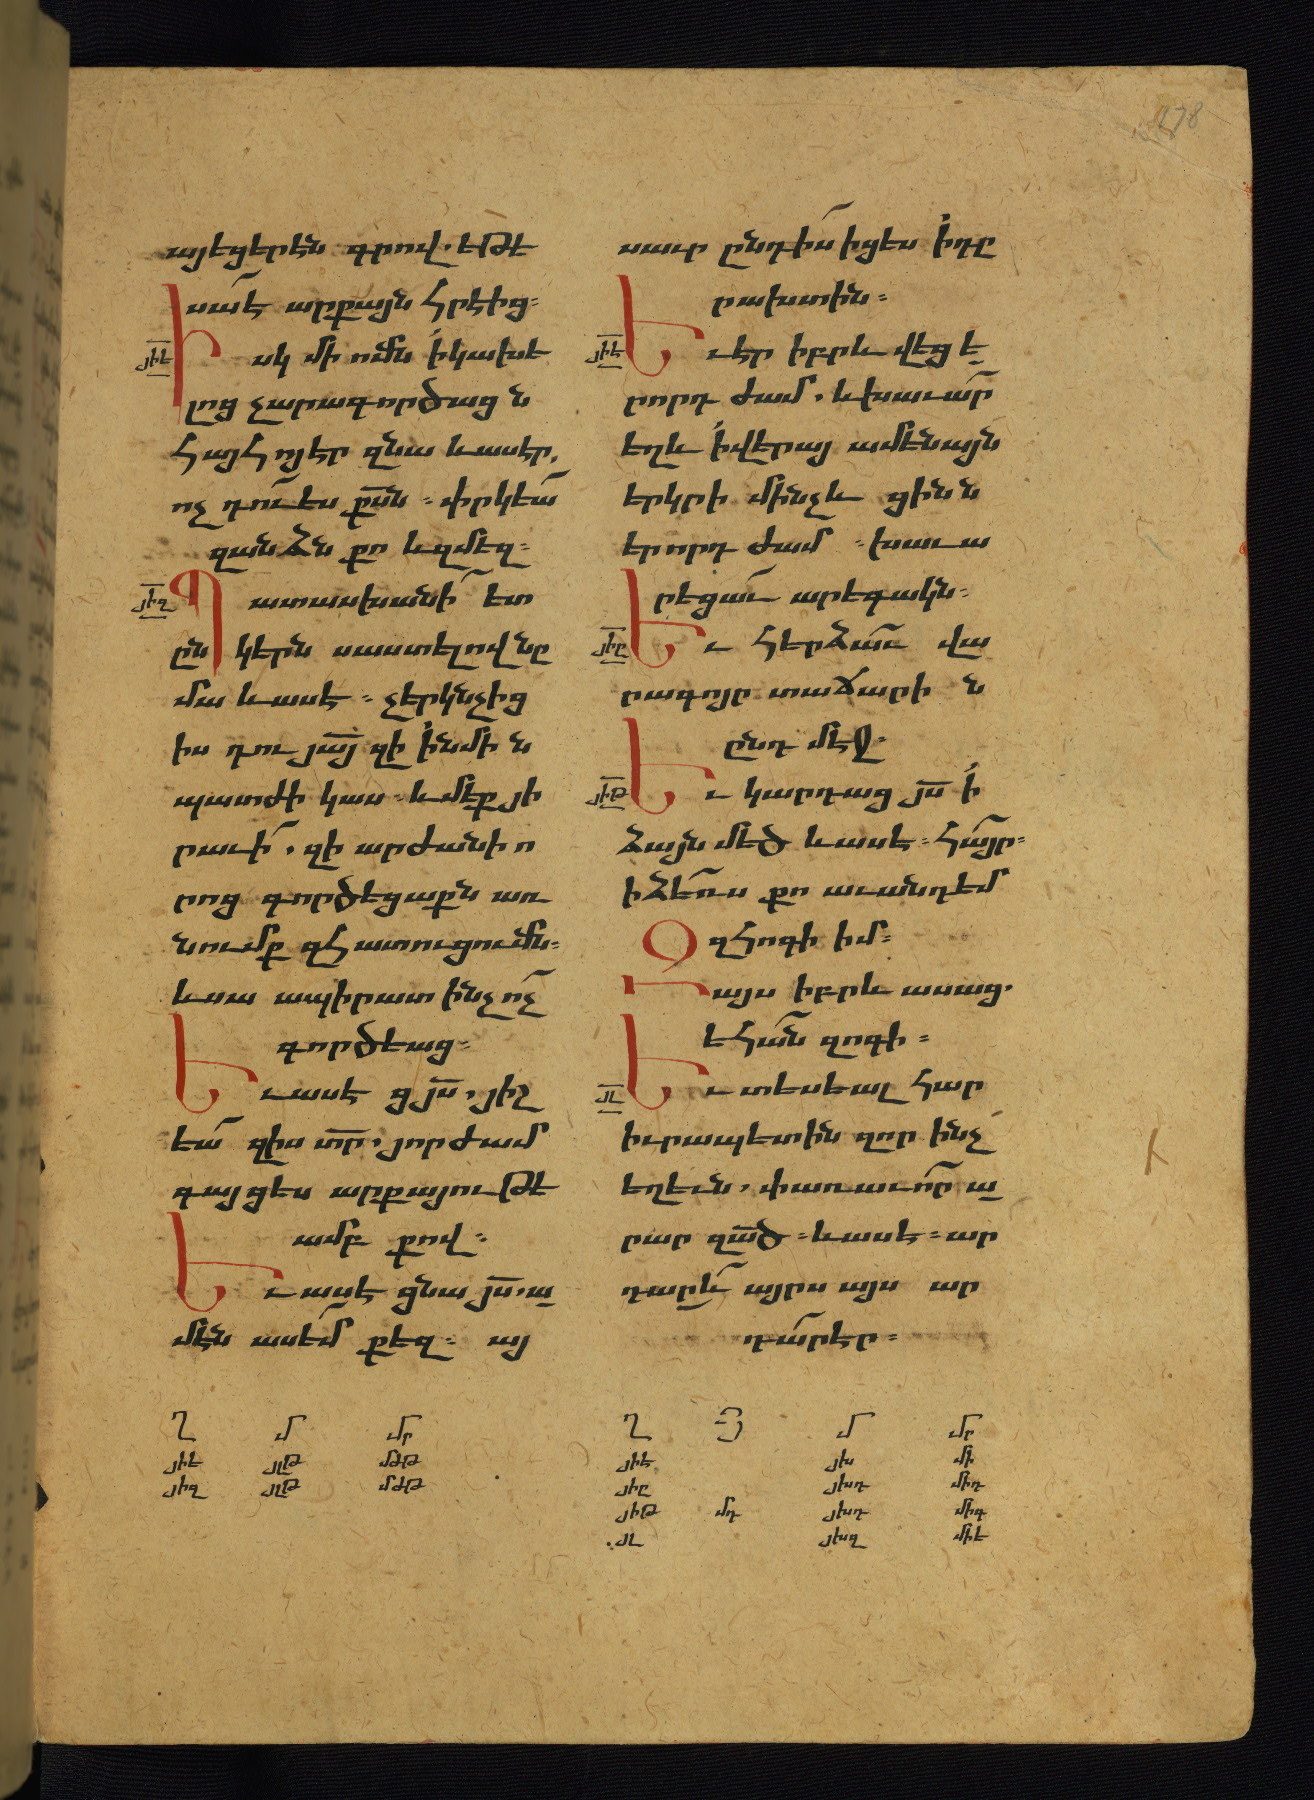 178
այեցերէն գրով. եթէ
սա՜է արքայն հրէից։
յիե Իսկ մի ոմն ՛ի կախե
լոց չարագործաց ն
հայհոյէր զնա և ասէր.
ոչ դու ես քսն ։ փրկեա՜
զանձն քո և զմեզ։
յիզ Պատասխանի՜ ետ
ընկերն սաստելով նը
մա և ասէ ։ չերկնչից
իս դու յայ զի ՛ի նմին
պատժի կաս ։ և մեք յի
րաւի՜, զի արժանի ո
րոց գործեցաքն առ
նումք զհատուցումն։
և սա ապիրատ ինչ ո՜չ
գործեաց։
Եւ ասէ ցյս, յիշ
եա՜ զիս տր, յորժամ
գայցես արքայութե
ամբ քով։
Եւ ասէ ցնա յս. ա
մէն ասե՜մ քեզ։ այ
սաւր ընդիս իցես ՛ի դը
րախտին։
յիէ Եւ էր իբրև վեց ե
րորդ ժամ, և խաւա՜ր
եղև ՛ի վերայ ամենայն
երկրի մինչև ցինն
երորդ ժամ ։ խաւա
րեցաւ արեգակն։
յիը Եւ հերձաւ վա
րագոյր տաճարի ն
ընդ մէջ.
յիթ Եւ կարդաց յս ՛ի
ձայն մեծ և ասէ ։ հա՜յր։
ի ձեռս քո աւանդեմ
զհոգի իմ։
Զայս իբրև ասաց.
եհան զոգի ։
յլ Եւ տեսեալ հար
իւրապետին զոր ինչ
եղևն, փառաւոր ա
րար զած ։ և ասէ ։ ար
դարև այրս այս ար
դա՜ր էր ։
Ղ մ մր
յիե յլթ մժթ
յիզ յլթ մժթ
Ղ Յ մ մր
յիէ յխ մի
յիը յխդ միդ
յիթ մդ յխդ միգ
յլ յխզ միե